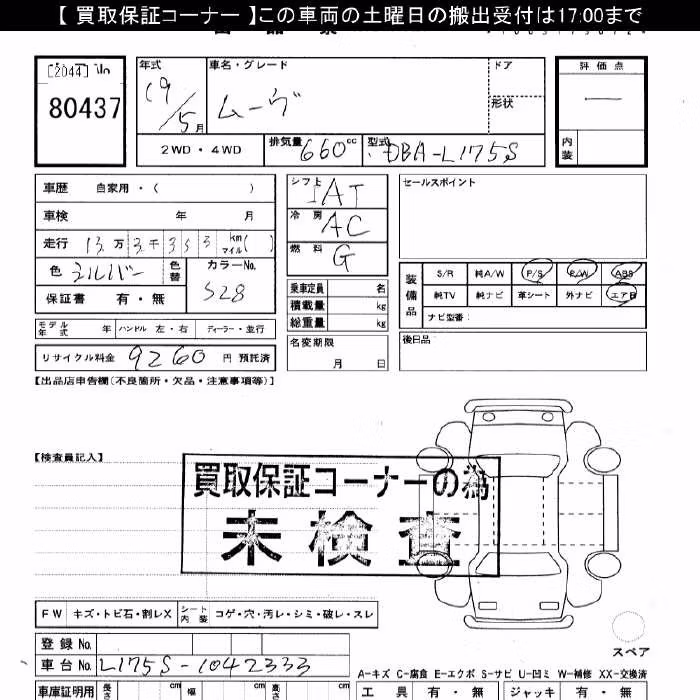 【 買取保証コーナー 】この車両の土曜日の搬出受付は17:00まで
80437
年式 19/5月
車名・グレード ムーヴ
ドア
形状
評価点 —
内装
2WD・4WD
排気量 660cc
型式 DBA-L175S
車歴 自家用・( )
車検 年 月
走行 13万3千353km マイル( )
色 シルバー 色替
カラーNo. S28
保証書 有・無
シフト IAT
冷房 AC
燃料 G
乗車定員 名
積載量 kg
総重量 kg
セールスポイント
装備品
S/R 純A/W P/S P/W ABS
純TV 純ナビ 革シート 外ナビ エアB
ナビ型番:
モデル年式 年 ハンドル 左・右 ディーラー・並行
リサイクル料金 9260 円 預託済
名変期限 月 日
後日品
【出品店申告欄(不良箇所・欠品・注意事項等)】
【検査員記入】
買取保証コーナーの為
未検査
FW キズ・トビ石・割レX シート内装 コゲ・穴・汚レ・シミ・破レ・スレ
スペア
登録No.
車台No. L175S-1042333
A-キズ C-腐食 E-エクボ S-サビ U-凹ミ W-補修 XX-交換済
車庫証明用 長さ cm 幅 cm 高さ cm
工具 有・無 ジャッキ 有・無